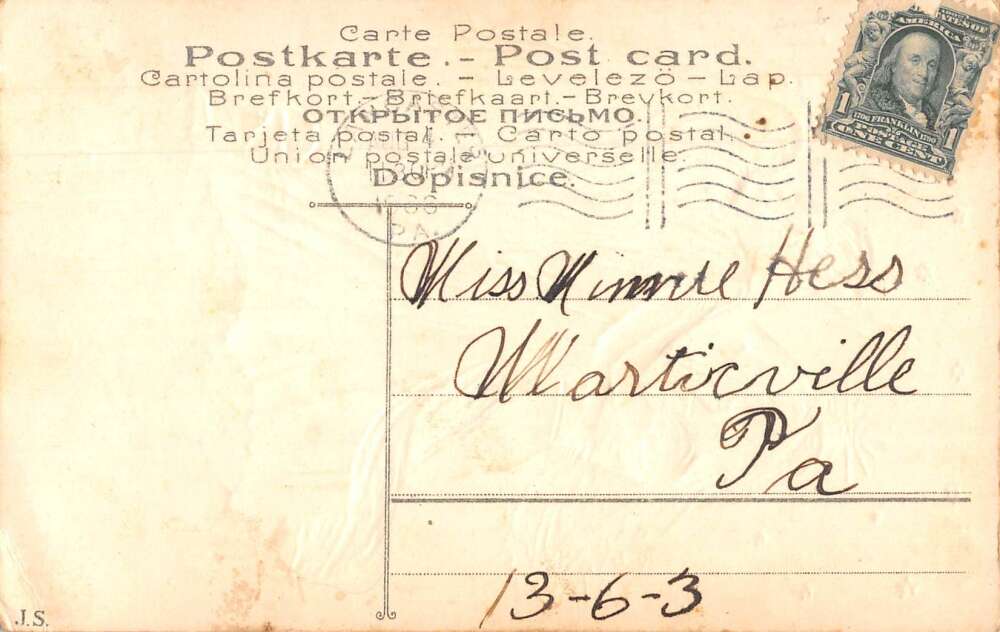 Carte Postale.
Postkarte. - Post card.
Cartolina postale. - Levelezö - Lap.
Brefkort.- Briefkaart.- Brevkort.
ОТКРЫТОЕ ПИСЬМО.
Tarjeta postal. - Carto postal.
Union postale universelle.
Dopisnice.
PA.
AMERICA
1706 FRANKLIN 1790
1 POSTAGE 1
ONE CENT
Miss Minnie Hess
Marticville
Pa
13-6-3
J.S.